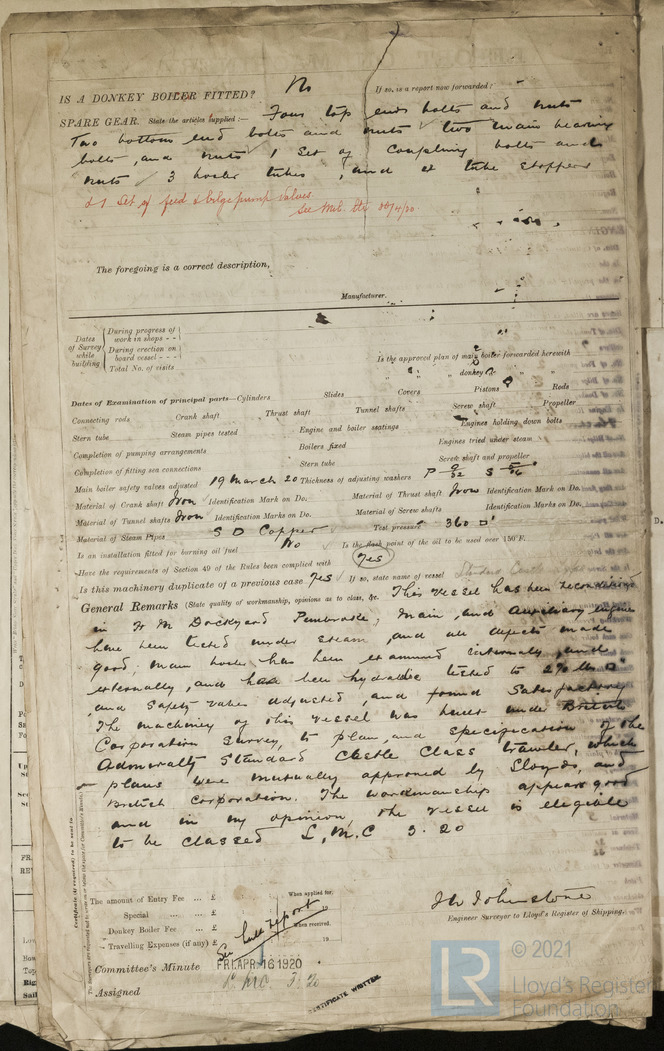 IS A DONKEY BOILER FITTED? No If so, is a report now forwarded?
SPARE GEAR. State the articles supplied:— Four top ends bolts and nuts
Two bottom end bolts and nuts two main bearing
bolts, and nuts 1 set of coupling bolts and
nuts 3 boiler tubes, and tube stoppers
& 1 Set of feed & bilge pump valves.
See
The foregoing is a correct description,
Manufacturer.
Dates of Survey while building
During progress of work in shops - -
During erection on board vessel - - -
Total No. of visits
Is the approved plan of main boiler forwarded herewith
" " donkey " "
Dates of Examination of principal parts—Cylinders Slides Covers Pistons Rods
Connecting rods Crank shaft Thrust shaft Tunnel shafts Screw shaft Propeller
Stern tube Steam pipes tested Engine and boiler seatings Engines holding down bolts
Completion of pumping arrangements Boilers fixed Engines tried under steam
Completion of fitting sea connections Stern tube Screw shaft and propeller
Main boiler safety valves adjusted 19 March 20 Thickness of adjusting washers P 9/32 S 5/16
Material of Crank shaft Iron Identification Mark on Do. Material of Thrust shaft Iron Identification Mark on Do.
Material of Tunnel shafts Iron Identification Marks on Do. Material of Screw shafts Identification Marks on Do.
Material of Steam Pipes S D Copper Test pressure 360 □"
Is an installation fitted for burning oil fuel No Is the flash point of the oil to be used over 150°F.
Have the requirements of Section 49 of the Rules been complied with Yes
Is this machinery duplicate of a previous case Yes If so, state name of vessel Standard Castle Type
General Remarks (State quality of workmanship, opinions as to class, &c. This vessel has been reconditioned
in H M Dockyard Pembroke, Main, and Auxiliary Engines
have been tested under steam, and all defects made
good, main boiler has been examined internally, and
externally, and has been hydraulic tested to 270 lbs □"
and safety valves adjusted, and found satisfactory
The machinery of this vessel was built under British
Corporation Survey, to plan, and specification of the
Admiralty Standard Castle Class trawler, which
plans were mutually approved by Lloyds, and
British Corporation. The workmanship appears good
and in my opinion, the vessel is eligible
to be classed L.M.C 3.20
Certificate (if required) to be sent to
The amount of Entry Fee ... £ When applied for,
Special ... ... £ 19
Donkey Boiler Fee ... £ When received,
Travelling Expenses (if any) £ 19
See hull report
J W Johnstone
Engineer Surveyor to Lloyd's Register of Shipping.
Committee's Minute FRI. APR. 16 1920
Assigned L.M.C 3.20
CERTIFICATE WRITTEN.
LR © 2021
Lloyd's Register
Foundation